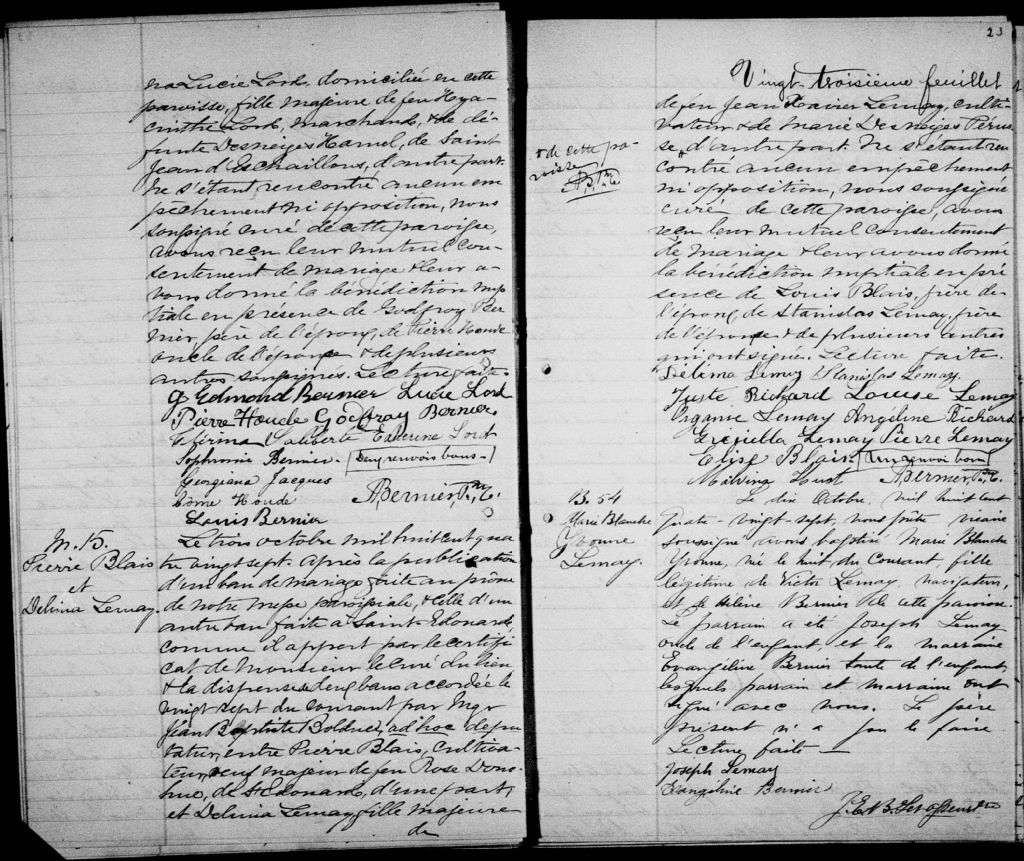 na Lucie Lord, domiciliée en cette
paroisse, fille majeure de feu Hya-
cinthe Lord, marchand, & de dé-
funte Desneiges Hamel, de Saint
Jean d'Eschaillons, d'autre part.
Ne s'étant rencontré aucun em
pêchement ni opposition, nous
soussigné curé de cette paroisse,
avons reçu leur mutuel con-
sentement de mariage & leur a-
vons donné la bénédiction nup
tiale en présence de Godfroy Ber
nier, père de l'époux, de Pierre Houde
oncle de l'épouse & de plusieurs
autres soussignés. Lecture faite.
J Edmond Bernier Lucie Lord
Pierre Houde Godfray Bernier
Caliberté Catherine Lord
Sophronie Bernier. (Deux renvois bons-)
Georgiana Jacques
Côme Houde ABernier, Ptre C.
Louis Bernier
M. 15.
Pierre Blais
et
Delima Lemay.
Le trois octobre mil huit cent qua
tre vingt sept. Après la publication
d'un ban de mariage faite au prône
de notre messe paroissiale, & celle d'un
autre ban faite à Saint Edouard,
comme il appert par le certifi
cat de Monsieur le Curé du lieu
& la dispense de deux bans accordée le
vingt sept du courant par Mgr
Jean Baptiste Bolduc, ad hoc depu
tatur, entre Pierre Blais, cultiva-
teur, veuf majeur de feu Rose Dono-
hue, de St Edouard, d'une part,
et Delima Lemay, fille majeure
de
23
Vingt-troisième feuillet
de feu Jean Xavier Lemay, culti-
vateur & de Marie Desneiges Pérus
se, d'autre part. Ne s'étant ren
contré aucun empêchement
ni opposition, nous soussigné
curé de cette paroisse, avons
reçu leur mutuel consentement
de mariage & leur avons donné
la bénédiction nuptiale en pré
sence de Louis Blais, frère de
l'époux, de Stanislas Lemay, frère
de l'épouse & de plusieurs autres
qui ont signé. Lecture faite.
& de cette pa-
roisse
Délima Lemay Stanislas Lemay.
Juste Richard Louise Lemay
Lemay Angéline Richard
Lemay Pierre Lemay
Elise Blais (Un renvoi bon)
Malvina Hust ABernier Ptre C.
B. 54
Marie Blanche
Yvonne
Lemay.
Le dix Octobre, mil huit cent
Quatre-vingt-sept, nous prêtre vicaire
soussigné avons baptisé Marie Blanche
Yvonne, née le huit du courant, fille
légitime de Victor Lemay, navigateur,
et de Hélène Bernier de cette paroisse.
Le parrain a été Joseph Lemay
oncle de l'enfant, et la marraine
Evangéline Bernier tante de l'enfant,
lesquels parrain et marraine ont
signé avec nous. Le père
présent n'a pu le faire
Lecture faite —
Joseph Lemay
Evangéline Bernier